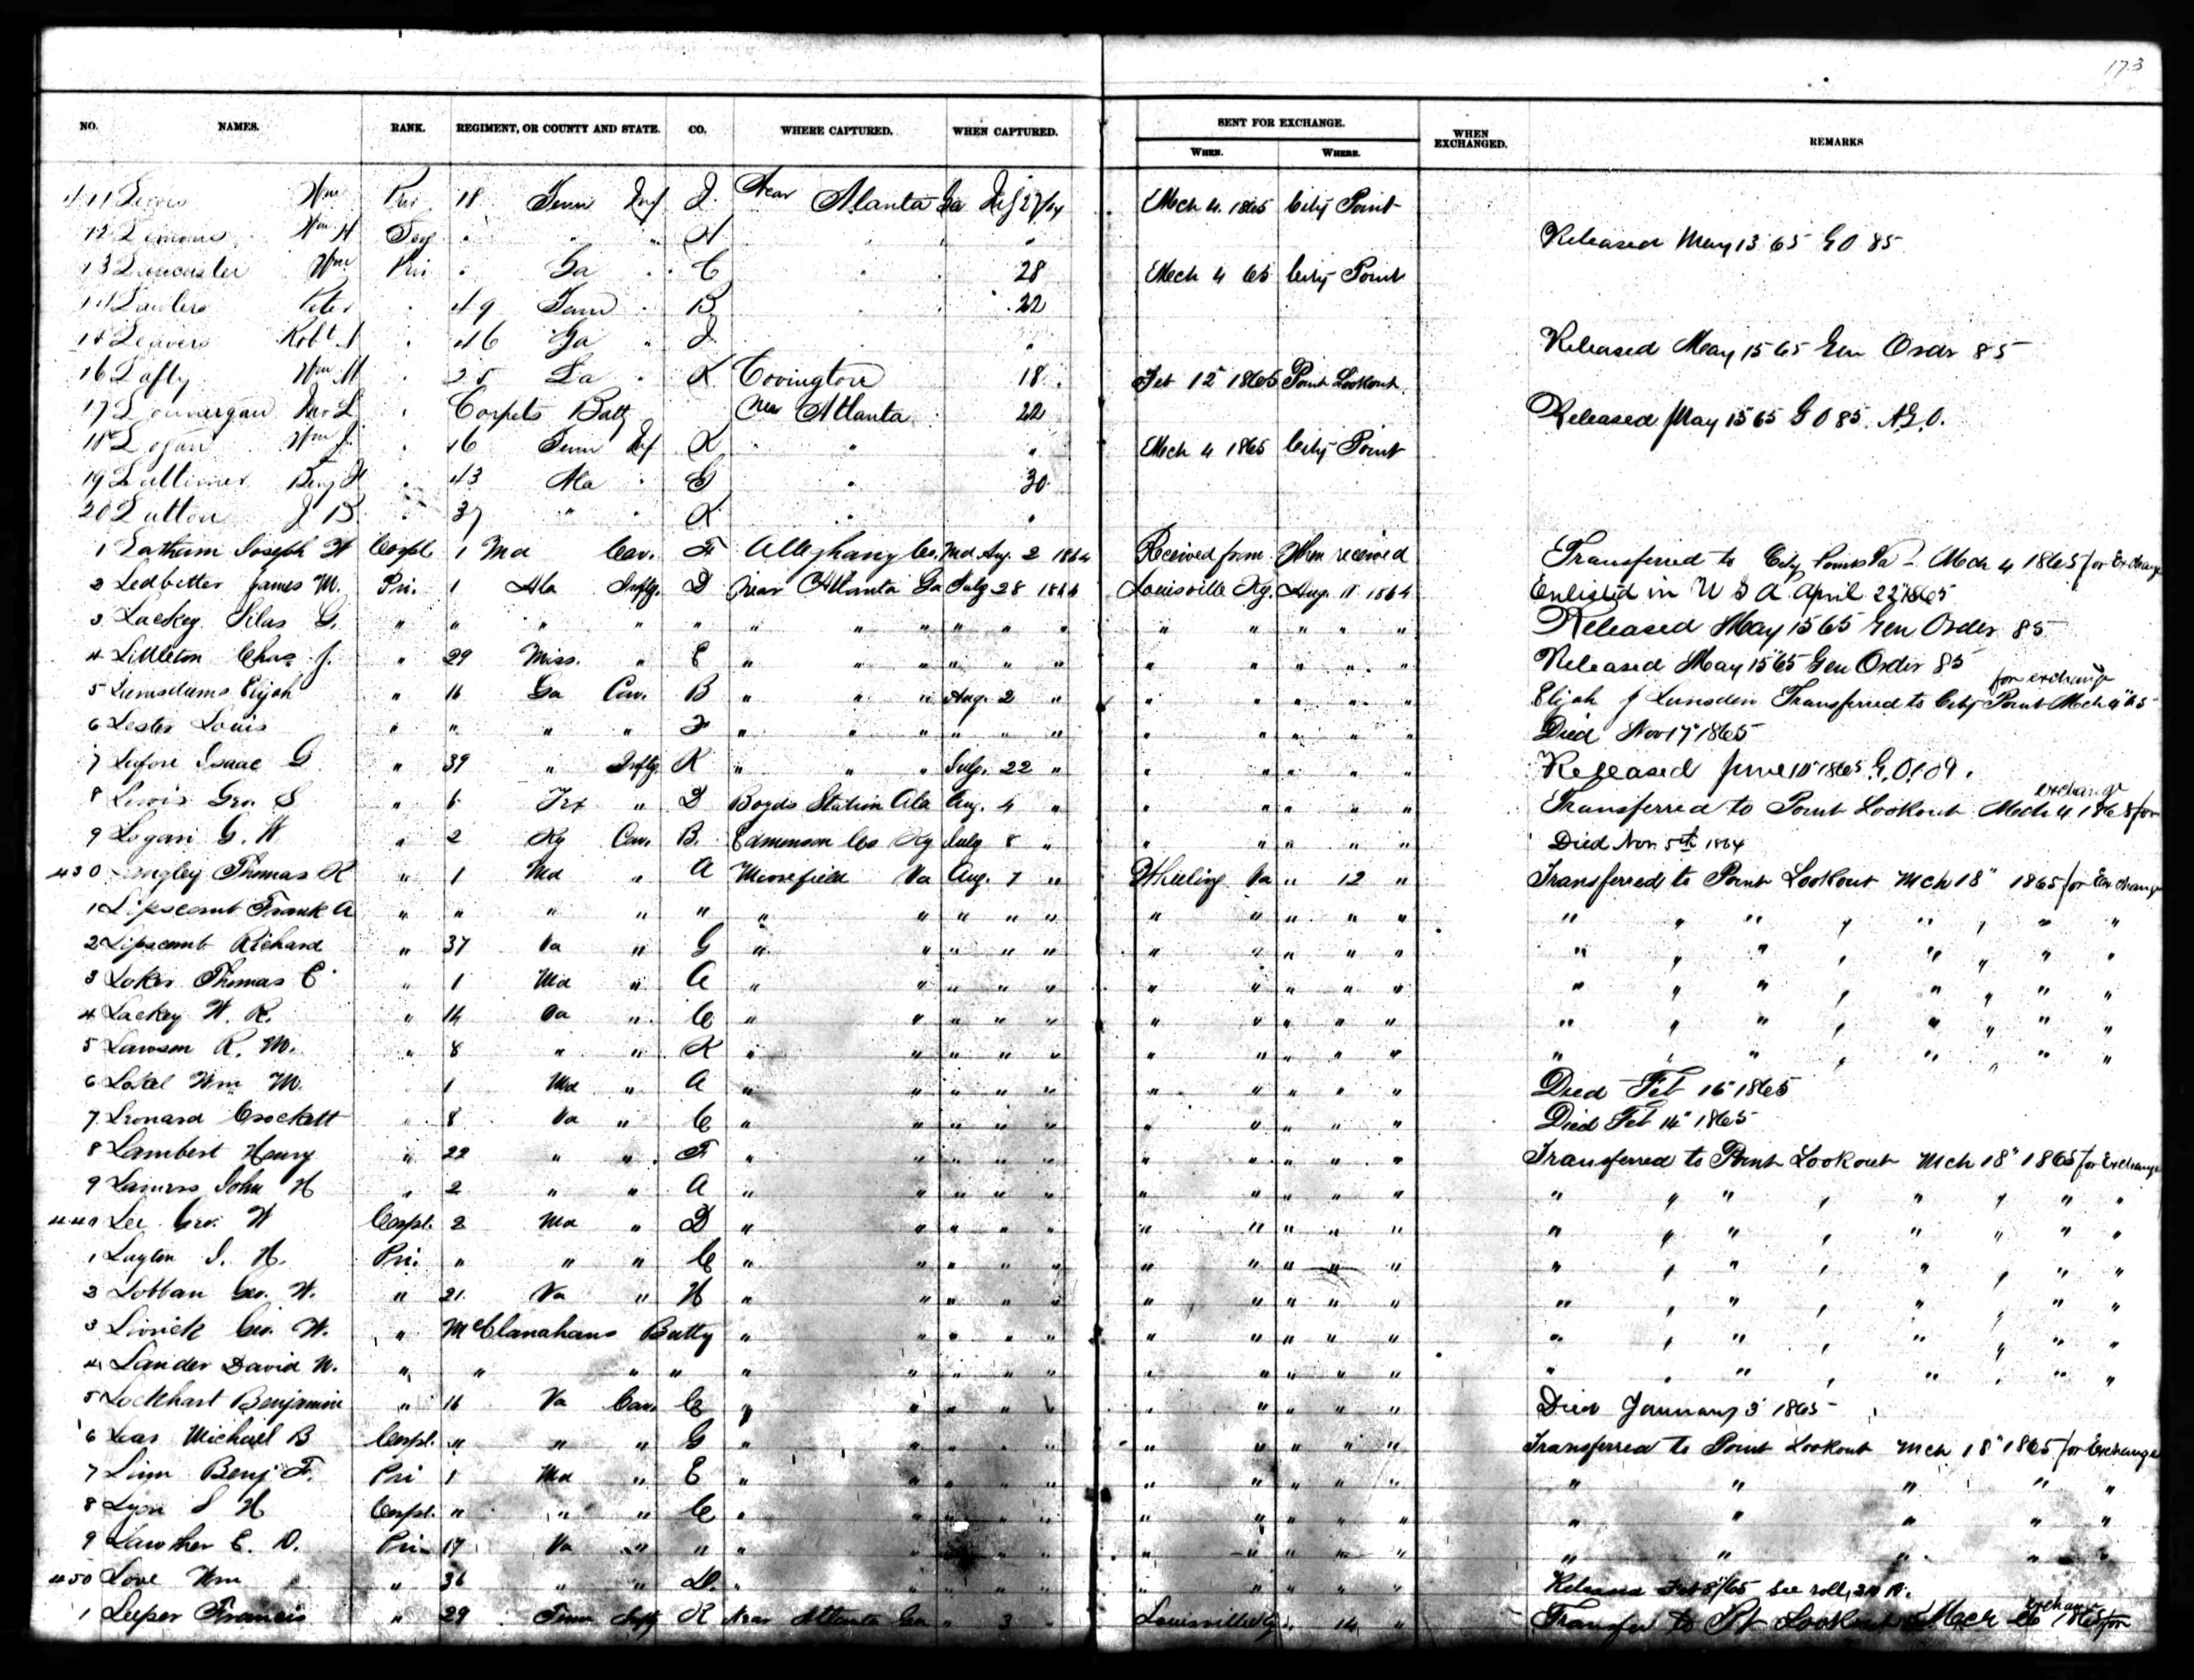 173
NO. NAMES. RANK. REGIMENT, OR COUNTY AND STATE. CO. WHERE CAPTURED. WHEN CAPTURED. SENT FOR EXCHANGE. WHEN. WHERE. WHEN EXCHANGED. REMARKS
411 Lewis Wm Pri 18 Tenn Inf I Near Atlanta Ga Mch 4. 1865 City Point
12 Lemons Wm H " " " H " " " Released May 15 65 G O 85
13 Lancaster Wm Pri " Ga " C " " 28 Mch 4 65 City Point
14 Peter " 49 Tenn " B " " 22
15 Leavers Robt " 46 Ga " I " " Released May 15 65 Gen Ordr 85
16 Lafly Wm M " 25 La " K Covington 18 Feb 12" 1865 Point Lookout
17 Lonnergan " Batty Near Atlanta 22 Released May 15 65 G O 85. A.G.O.
18 Logan Wm J. " 16 Tenn Inf K " " " Mch 4 1865 City Point
19 Lattimer Benj " 43 Ala " G " 30
20 Lutton J B " 37 " " K " "
1 Latham Joseph W Corpl. 1 Md Cav. F Alleghany Co. Md Aug. 2 1864 Received from When received Transferred to City Point Va Mch 4 1865 for Exchange
2 Ledbetter James M. Pri. 1 Ala Inftg. D Near Atlanta Ga July 28 1864 Louisville Ky. Aug. 11 1864 Enlisted in U S A April 22" 1865
3 Lackey Silas G. " " " " " " " " " " " " " " " " Released May 15 65 Gen Order 85
4 Littleton Chas J. " 29 Miss. " E " " " " " " " " " " " Released May 15" 65 Gen Order 85
5 Lumsdums Elijah " 16 Ga Cav. B " " " Aug. 2 " " " " " " Elijah J Lumsden Transferred to City Point Mch 4" 65 for exchange
6 Lester Louis " " " " F " " " " " " " " " " " Died Nov 17" 1865
7 Isaac G " 39 " Inftg. K " " " July. 22 " " " " " " Released June 10" 1865 G.O. 109.
8 Lewis Geo. S " 6 Tex " D Boyds Station Ala Aug. 4 " " " " " " Transferred to Point Lookout Mch 4 1865 for exchange
9 Logan G. W " 2 Ky Cav. B. Edmonson Co Ky July 8 " " " " " " Died Nov. 5th 1864
430 Langley Thomas R " 1 Md " A Moorefield Va Aug. 7 " Wheeling Va " 12 " Transferred to Point Lookout Mch 18" 1865 for Exchange
1 Lipscomb Frank A " " " " " " " " " " " " " " " " " " " " " " "
2 Lipscomb Richard " 37 Va " G " " " " " " " " " " " " " " " " " "
3 Loker Thomas C " 1 Md " A " " " " " " " " " " " " " " " " " "
4 Lackey W. R. " 14 Va " C " " " " " " " " " " " " " " " " " "
5 Lawson R. M. " 8 " " K " " " " " " " " " " " " " " " " " "
6 Lokel Wm M. 1 Md " A " " " " " " " " " " Died Feb 16" 1865
7 Leonard Crockett " 8 Va " C " " " " " " " " " " Died Feb 14" 1865
8 Lambert Henry " 22 " " F " " " " " " " " " " Transferred to Point Lookout Mch 18" 1865 for Exchange
9 John H " 2 " " A " " " " " " " " " " " " " " " " " "
440 Lee Geo. W Corpl. 2 Md " D " " " " " " " " " " " " " " " " " "
1 Layton J. H. Pri. " " " C " " " " " " " " " " " " " " " " " "
2 Lobban Geo. W. " 21. Va " H " " " " " " " " " " " " " " " " " "
3 Geo. W. " McClanahans Batty " " " " " " " " " " " " " " " " " "
4 Lander David N. " " " " " " " " " " " " " " " " " " " " "
5 Lockhart Benjamin " 16 Va Cav. C " " " " " " " " " " Died January 3" 1865
6 Lear Michael B Corpl. " " " G " " " " " " " " " " Transferred to Point Lookout Mch 18" 1865 for Exchange
7 Linn Benj. F. Pri 1 Md " E " " " " " " " " " " " " " " "
8 Lyon S H Corpl. " " " C " " " " " " " " " " " " " " "
9 Lawther E. D. Pri 17 Va " " " " " " " " " " " " " " " " "
450 Love Wm " 36 " " D. " " " " " " " " " " Released Feb 8"/65 See roll,
1 Leeper Francis " 29 Tenn Inftg K Near Atlanta Ga " 3 " Louisville Ky " 14 " Transfer to Pt Lookout Mch 1865 for exchange